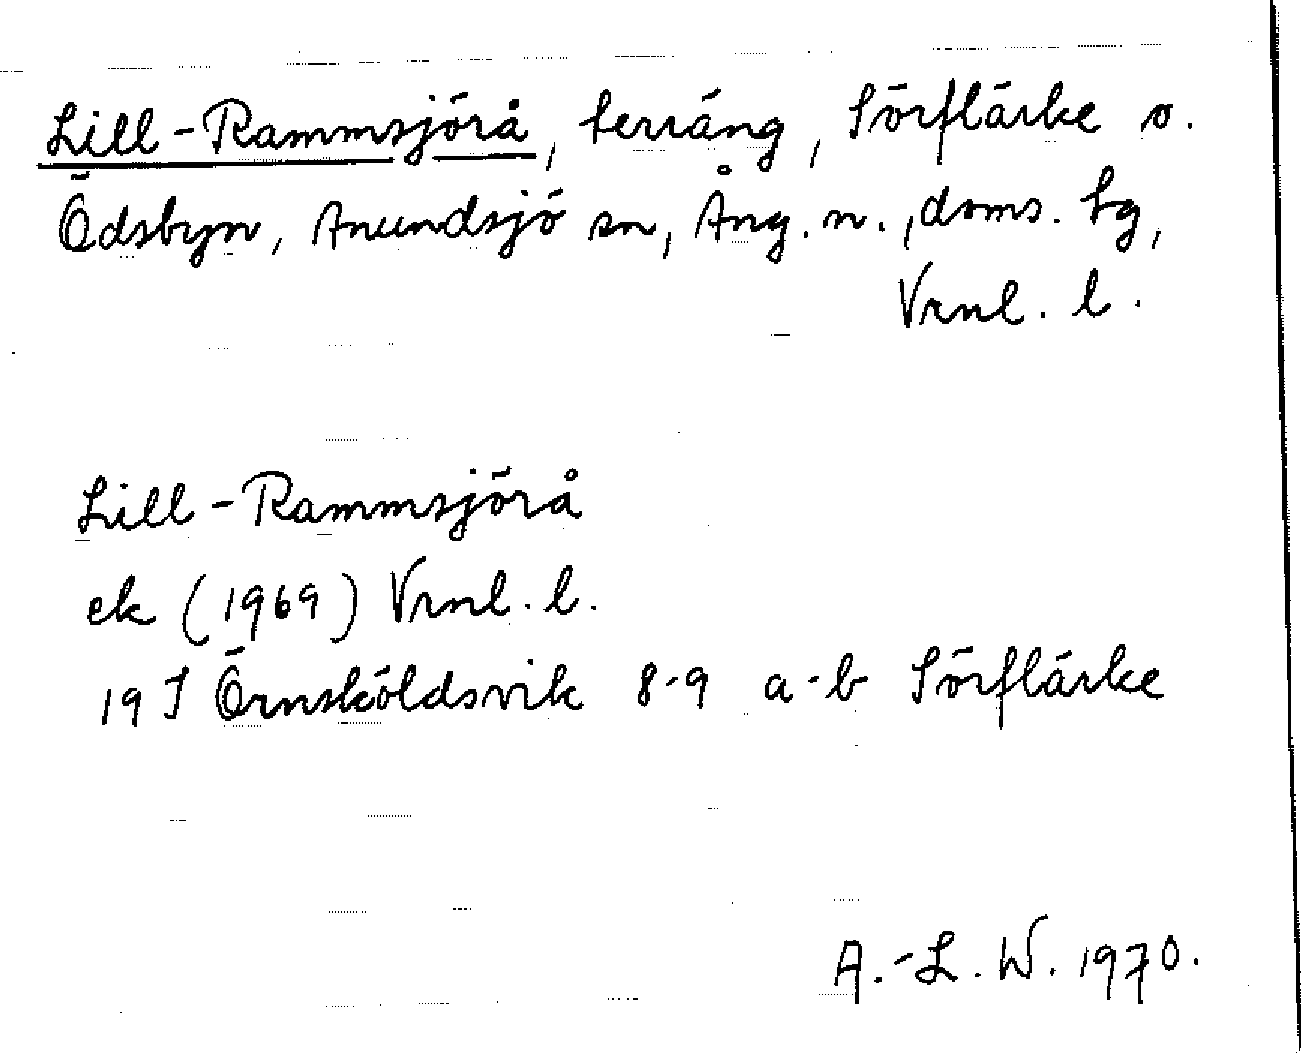 Lill-Rammsjörå, terräng, Sörflärke o.
Ödsbyn, Anundsjö sn, Ång. n., doms. tg,
Vrnl. l.
Lill-Rammsjörå
ek (1969) Vrnl. l.
19 J Örnsköldsvik 8-9 a-b Sörflärke
A.-L. W. 1970.